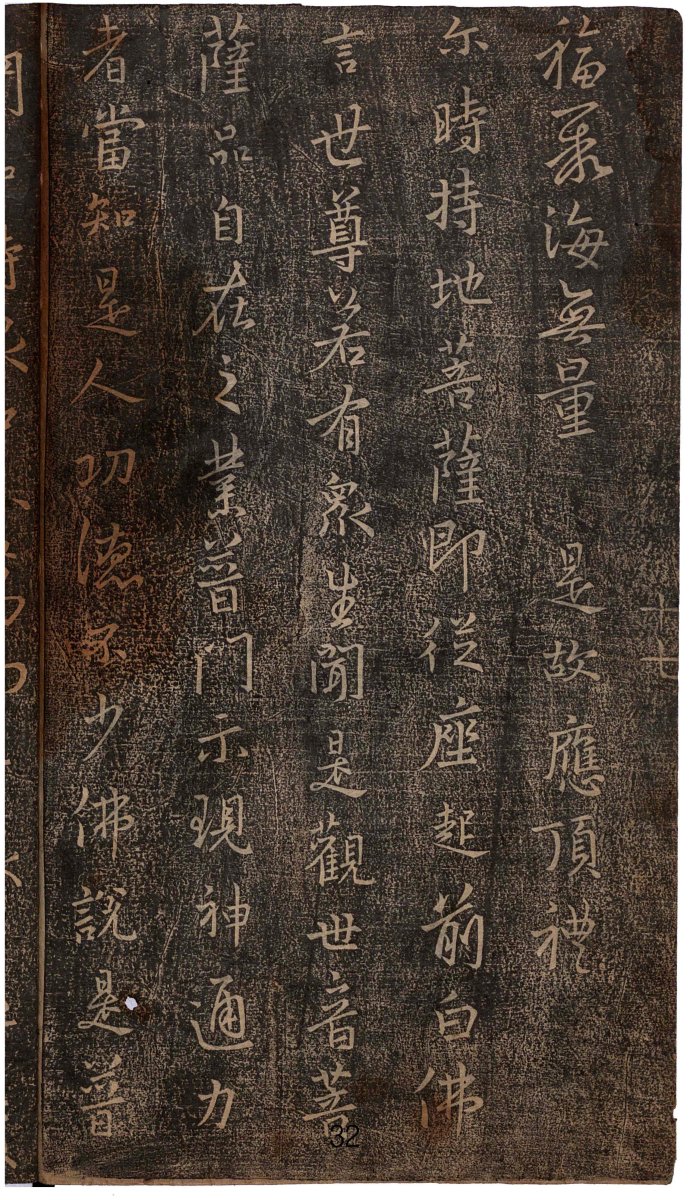 福聚海無量 是故應頂禮
尒時持地菩薩即從座起前白佛
言世尊若有衆生聞是觀世音菩
薩品自在之業普門示現神通力
者當知是人功德不少佛說是普
十七
32